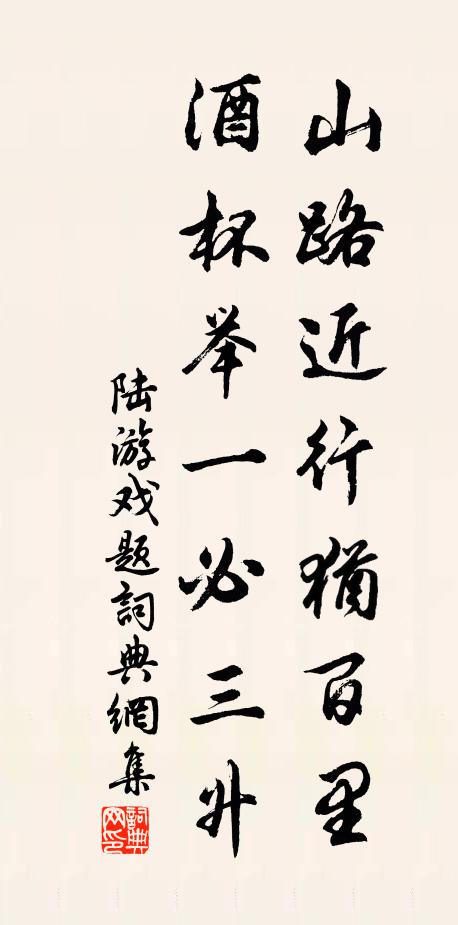 山路近行犹百里
酒杯举一必三升
陆游戏题詞典網集
詞典网印